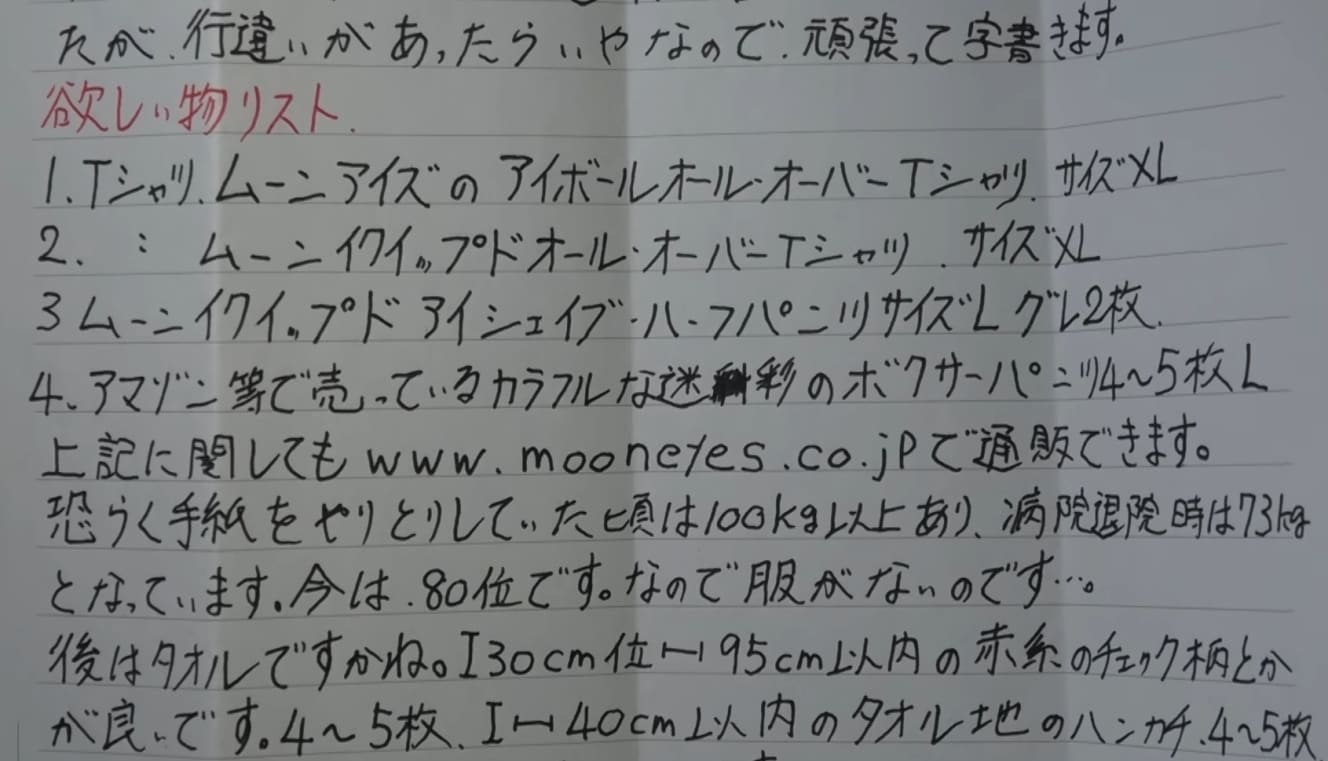 たが、行違いがあったらいやなので、頑張って字書きます。
欲しい物リスト.
1.Tシャツ.ムーンアイズのアイボールオール・オーバーTシャツ.サイズXL
2. : ムーンイクイップドオール・オーバーTシャツ.サイズXL
3 ムーンイクイップドアイシェイブ・ハーフパンツサイズLグレ2枚.
4、アマゾン等で売っているカラフルな迷彩のボクサーパンツ4~5枚L
上記に関してもwww.mooneyes.co.jpで通販できます。
恐らく手紙をやりとりしていた頃は100kg以上あり、病院退院時は73kg
となっています。今は.80位です。なので服がないのです…。
後はタオルですかね。I30cm位⊢⊣95cm以内の赤系のチェック柄とか
が良いです。4~5枚、I⊢⊣40cm以内のタオル地のハンカチ.4~5枚